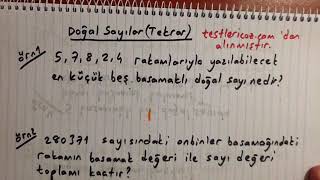 Doğal Sayılar (Tekrar)
testlericoz.com 'dan
alınmıştır.
örn1
5, 7, 8, 2, 4 rakamlarıyla yazılabilecek
en küçük beş basamaklı doğal sayı nedir?
örn2
280371 sayısındaki onbinler basamağındaki
rakamın basamak değeri ile sayı değeri
toplamı kaçtır?